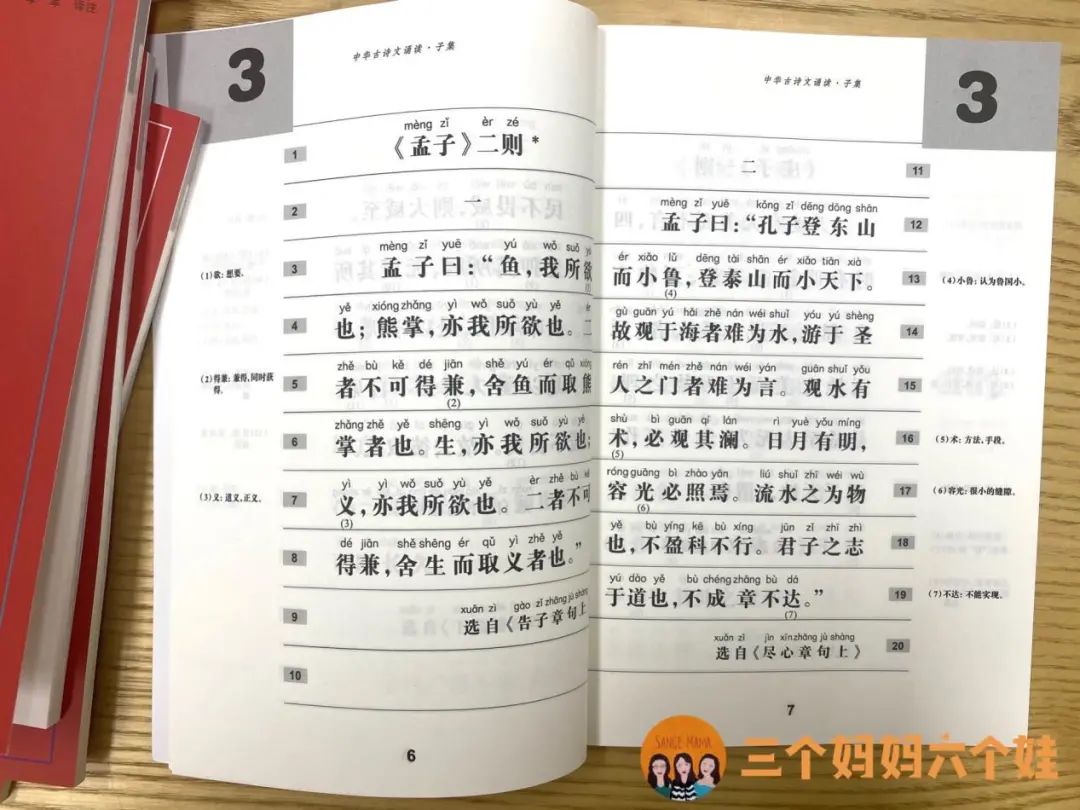 译注
3
中华古诗文诵读·子集
mèng zǐ èr zé
1 《孟子》二则*
2 一
mèng zǐ yuē yú wǒ suǒ yù
(1)欲:想要。
3 孟子曰:“鱼,我所欲
(1)
yě xióng zhǎng yì wǒ suǒ yù yě
4 也;熊掌,亦我所欲也。二
zhě bù kě dé jiān shě yú ér qǔ xióng
(2)得兼:兼得,同时获
得。
5 者不可得兼,舍鱼而取熊
(2)
zhǎng zhě yě shēng yì wǒ suǒ yù yě
6 掌者也。生,亦我所欲也;
yì yì wǒ suǒ yù yě èr zhě bù kě
(3)义:道义,正义。
7 义,亦我所欲也。二者不可
(3)
dé jiān shě shēng ér qǔ yì zhě yě
8 得兼,舍生而取义者也。”
xuǎn zì gào zǐ zhāng jù shàng
9 选自《告子章句上
10
6
中华古诗文诵读·子集
3
二 11
mèng zǐ yuē kǒng zǐ dēng dōng shān
孟子曰:“孔子登东山 12
ér xiǎo lǔ dēng tài shān ér xiǎo tiān xià
而小鲁,登泰山而小天下。 13
(4)小鲁:认为鲁国小。
(4)
gù guān yú hǎi zhě nán wéi shuǐ yóu yú shèng
故观于海者难为水,游于圣 14
rén zhī mén zhě nán wéi yán guān shuǐ yǒu
人之门者难为言。观水有 15
shù bì guān qí lán rì yuè yǒu míng
术,必观其澜。日月有明, 16
(5)术:方法,手段。
(5)
róng guāng bì zhào yān liú shuǐ zhī wéi wù
容光必照焉。流水之为物 17
(6)容光:很小的缝隙。
(6)
yě bù yíng kē bù xíng jūn zǐ zhī zhì
也,不盈科不行。君子之志 18
yú dào yě bù chéng zhāng bù dá
于道也,不成章不达。” 19
(7)不达:不能实现。
(7)
xuǎn zì jìn xīn zhāng jù shàng
选自《尽心章句上》 20
7
SANGE MAMA
三个妈妈六个娃